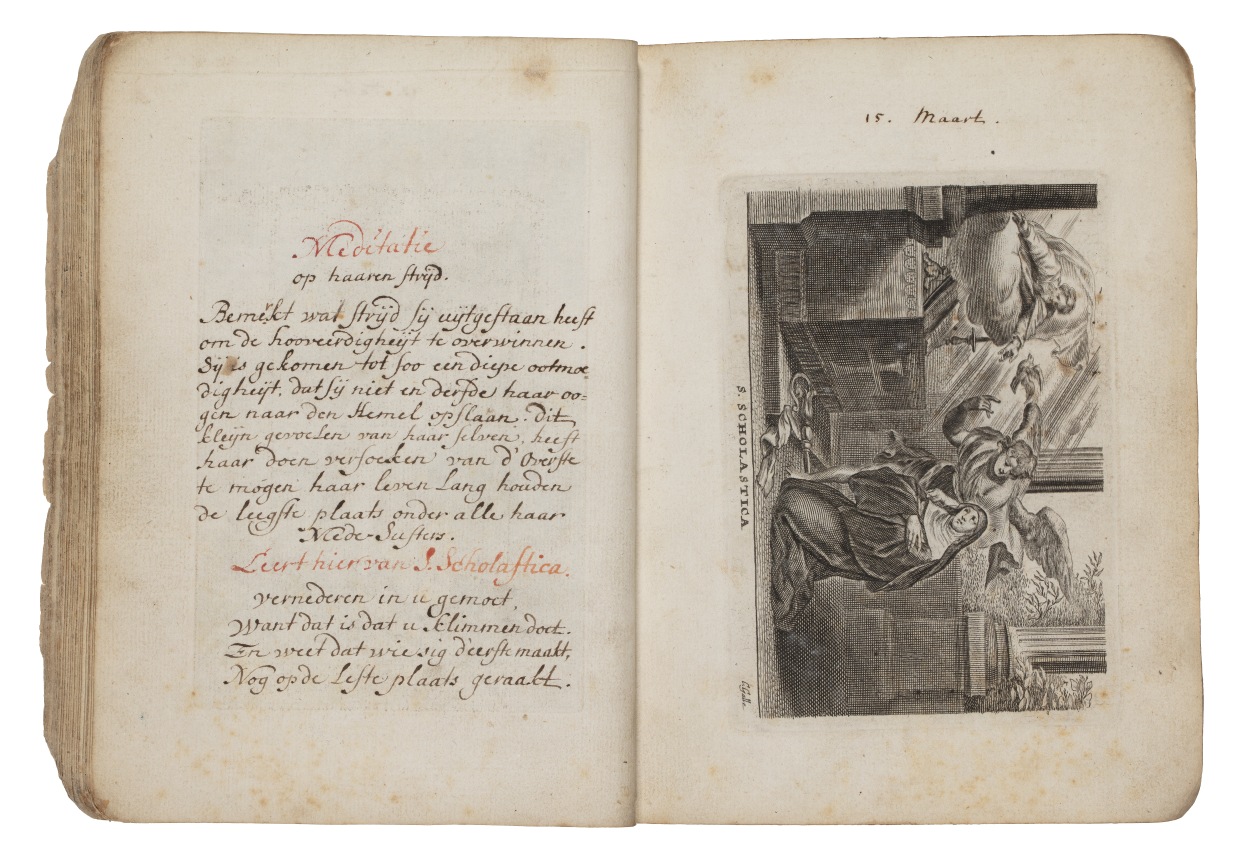 Meditatie
op haaren strijd.
Bemerkt wat strijd sij uijtgestaan heeft
om de hooveerdigheijt te overwinnen.
Sij is gekomen tot soo een diepe ootmoe
digheijt, dat sij niet en derfde haar oo=
gen naar den Hemel opslaan. dit
kleijn gevoelen van haar selven, heeft
haar doen versoeken van d'Overste
te mogen haar leven Lang houden
de leegste plaats onder alle haar
Mede Susters.
Leert hier van S. Scholastica.
vernederen in u gemoet,
Want dat is dat u klimmen doet.
En weet dat wie sig d'eerste maakt,
Nog op de Leste plaats geraakt.
15. Maart.
S. SCHOLASTICA